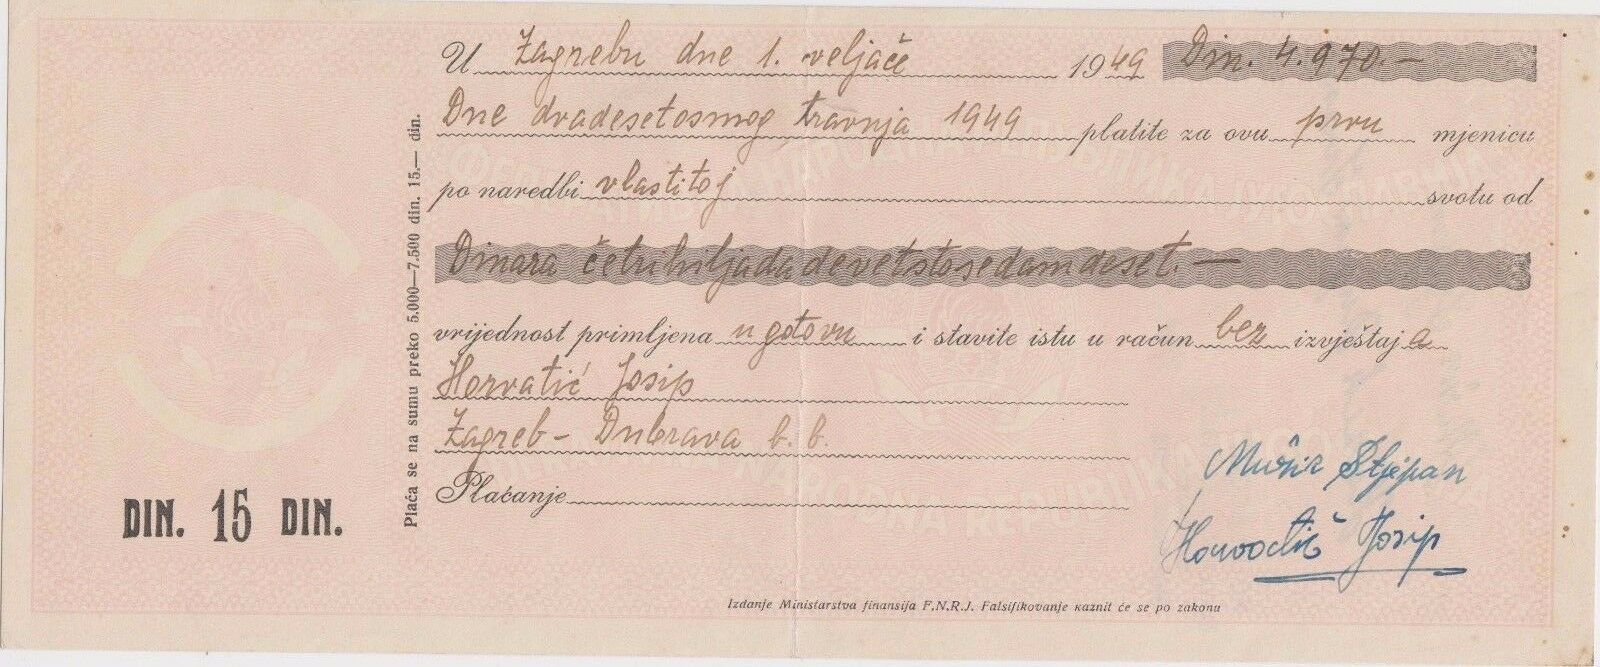 U Zagrebu dne 1. veljače 1949 Din. 4.970.—
Dne dvadesetosmog travnja 1949 platite za ovu prvu mjenicu
po naredbi vlastitoj svotu od
Dinara četrihiljadadevetstosedamdeset.—
vrijednost primljena u gotovu i stavite istu u račun bez izvještaja
Horvatić Josip
Zagreb - Dubrava b. b.
Plaćanje
Plaća se na sumu preko 5.000—7.500 din. 15.— din.
DIN. 15 DIN.
Stjepan
Horvatić Josip
Izdanje Ministarstva finansija F.N.R.J. Falsifikovanje kaznit će se po zakonu